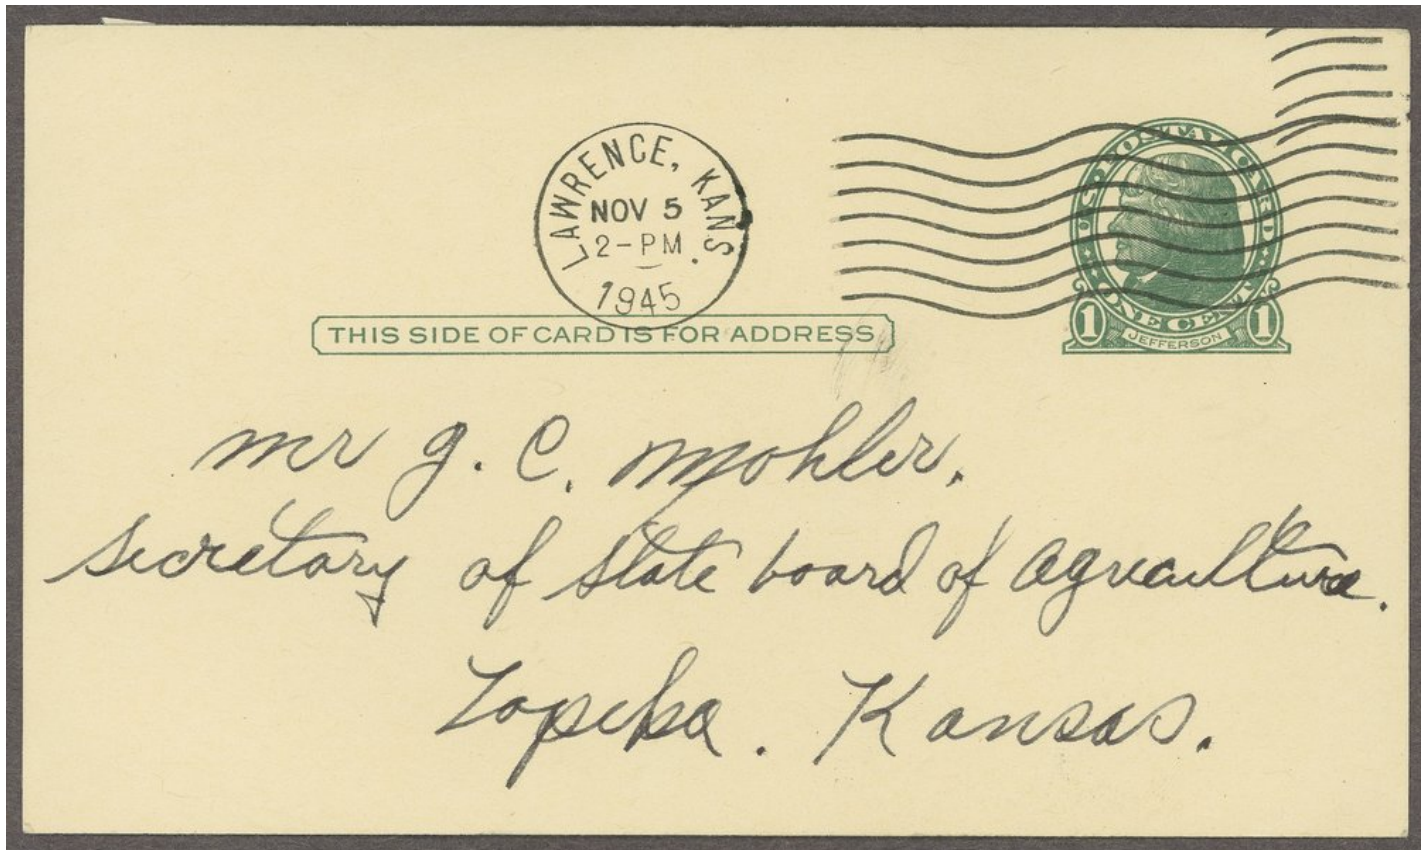 LAWRENCE, KANS.
NOV 5
2-PM
1945
U.S. POSTAL CARD
ONE CENT
1 JEFFERSON 1
THIS SIDE OF CARD IS FOR ADDRESS
Mr J. C. Mohler.
Secretary of State board of Agriculture.
Topeka. Kansas.